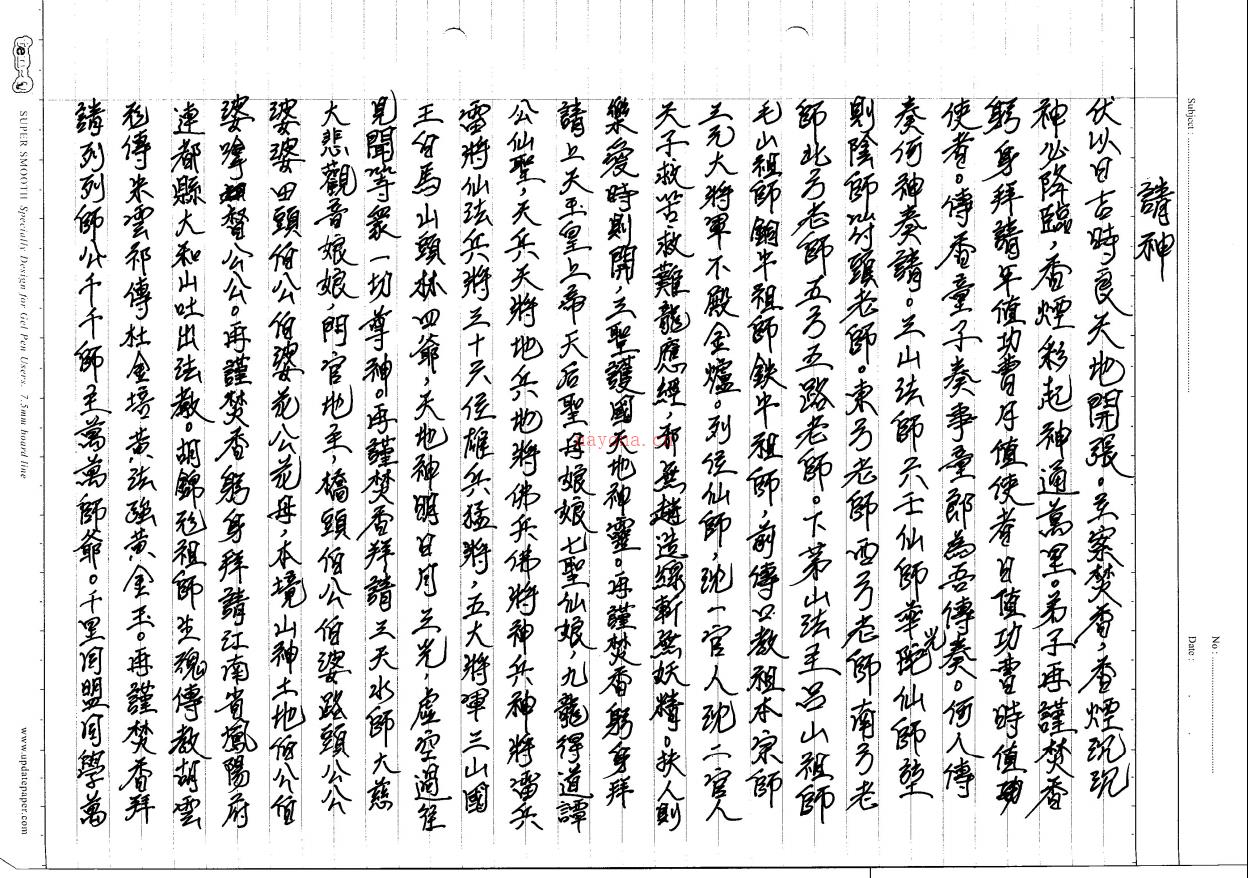 Subject :
No :
Date :
請神
伏以日吉時良天地開張。玄案焚香，香煙沉沉
神必降臨，香煙彩起神通萬里。弟子再謹焚香
躬身拜請年值功曹月值使者日值功曹時值功
使者。傳香童子奏事童郎為吾傳奏。何人傳
奏何神奏請。三山法師六壬仙師華光陀仙師
則陰師竹頭老師。東方老師西方老師南方老
師北方老師五方五路老師。下茅山法主呂山祖師
毛山祖師銅牛祖師鉄牛祖師，前傳口教祖本宗師
三元大將軍不殿金爐。列位仙師，沈一官人沈二官人
天子救苦救難龍應經，邪無趙造緣斬無妖精。扶人則
樂愛時則開，三聖護國天地神靈。再謹焚香躬身拜
請上天玉皇上帝天后聖母娘娘七聖仙娘九龍得道譚
公仙聖，天兵天將地兵地將佛兵佛將神兵神將雷兵
雷將仙法兵將三十六位雄兵猛將，五大將軍三山國
王伯馬山頭林四爺，天地神明日月三光，虛空過往
見聞等眾一切尊神。再謹焚香拜請三天水師大慈
大悲觀音娘娘，門官地主橋頭伯公伯婆路頭公公
婆婆田頭伯公伯婆花公花母，本境山神土地伯公伯
婆嗱督公公。再謹焚香躬身拜請江南省鳳陽府
連都縣大和山吐出法教。胡錦彪祖師生魂傳教胡雲
彪傳朱雲祁傳杜金培黃法強黃金玉。再謹焚香拜
請列列師公千千師主萬萬師爺。千里同盟同學萬
nayona.cn
SUPER SMOOTH Specially Design for Gel Pen Users. 7.5mm board line
www.updatepaper.com